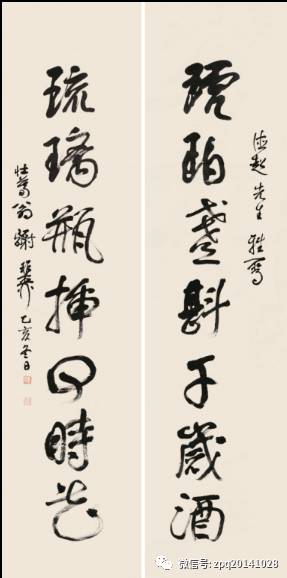 琥珀盞斟千歲酒
先生雅屬
琉璃瓶插四時花
壯暮翁謝稚柳乙亥冬日
微信号: zpq20141028